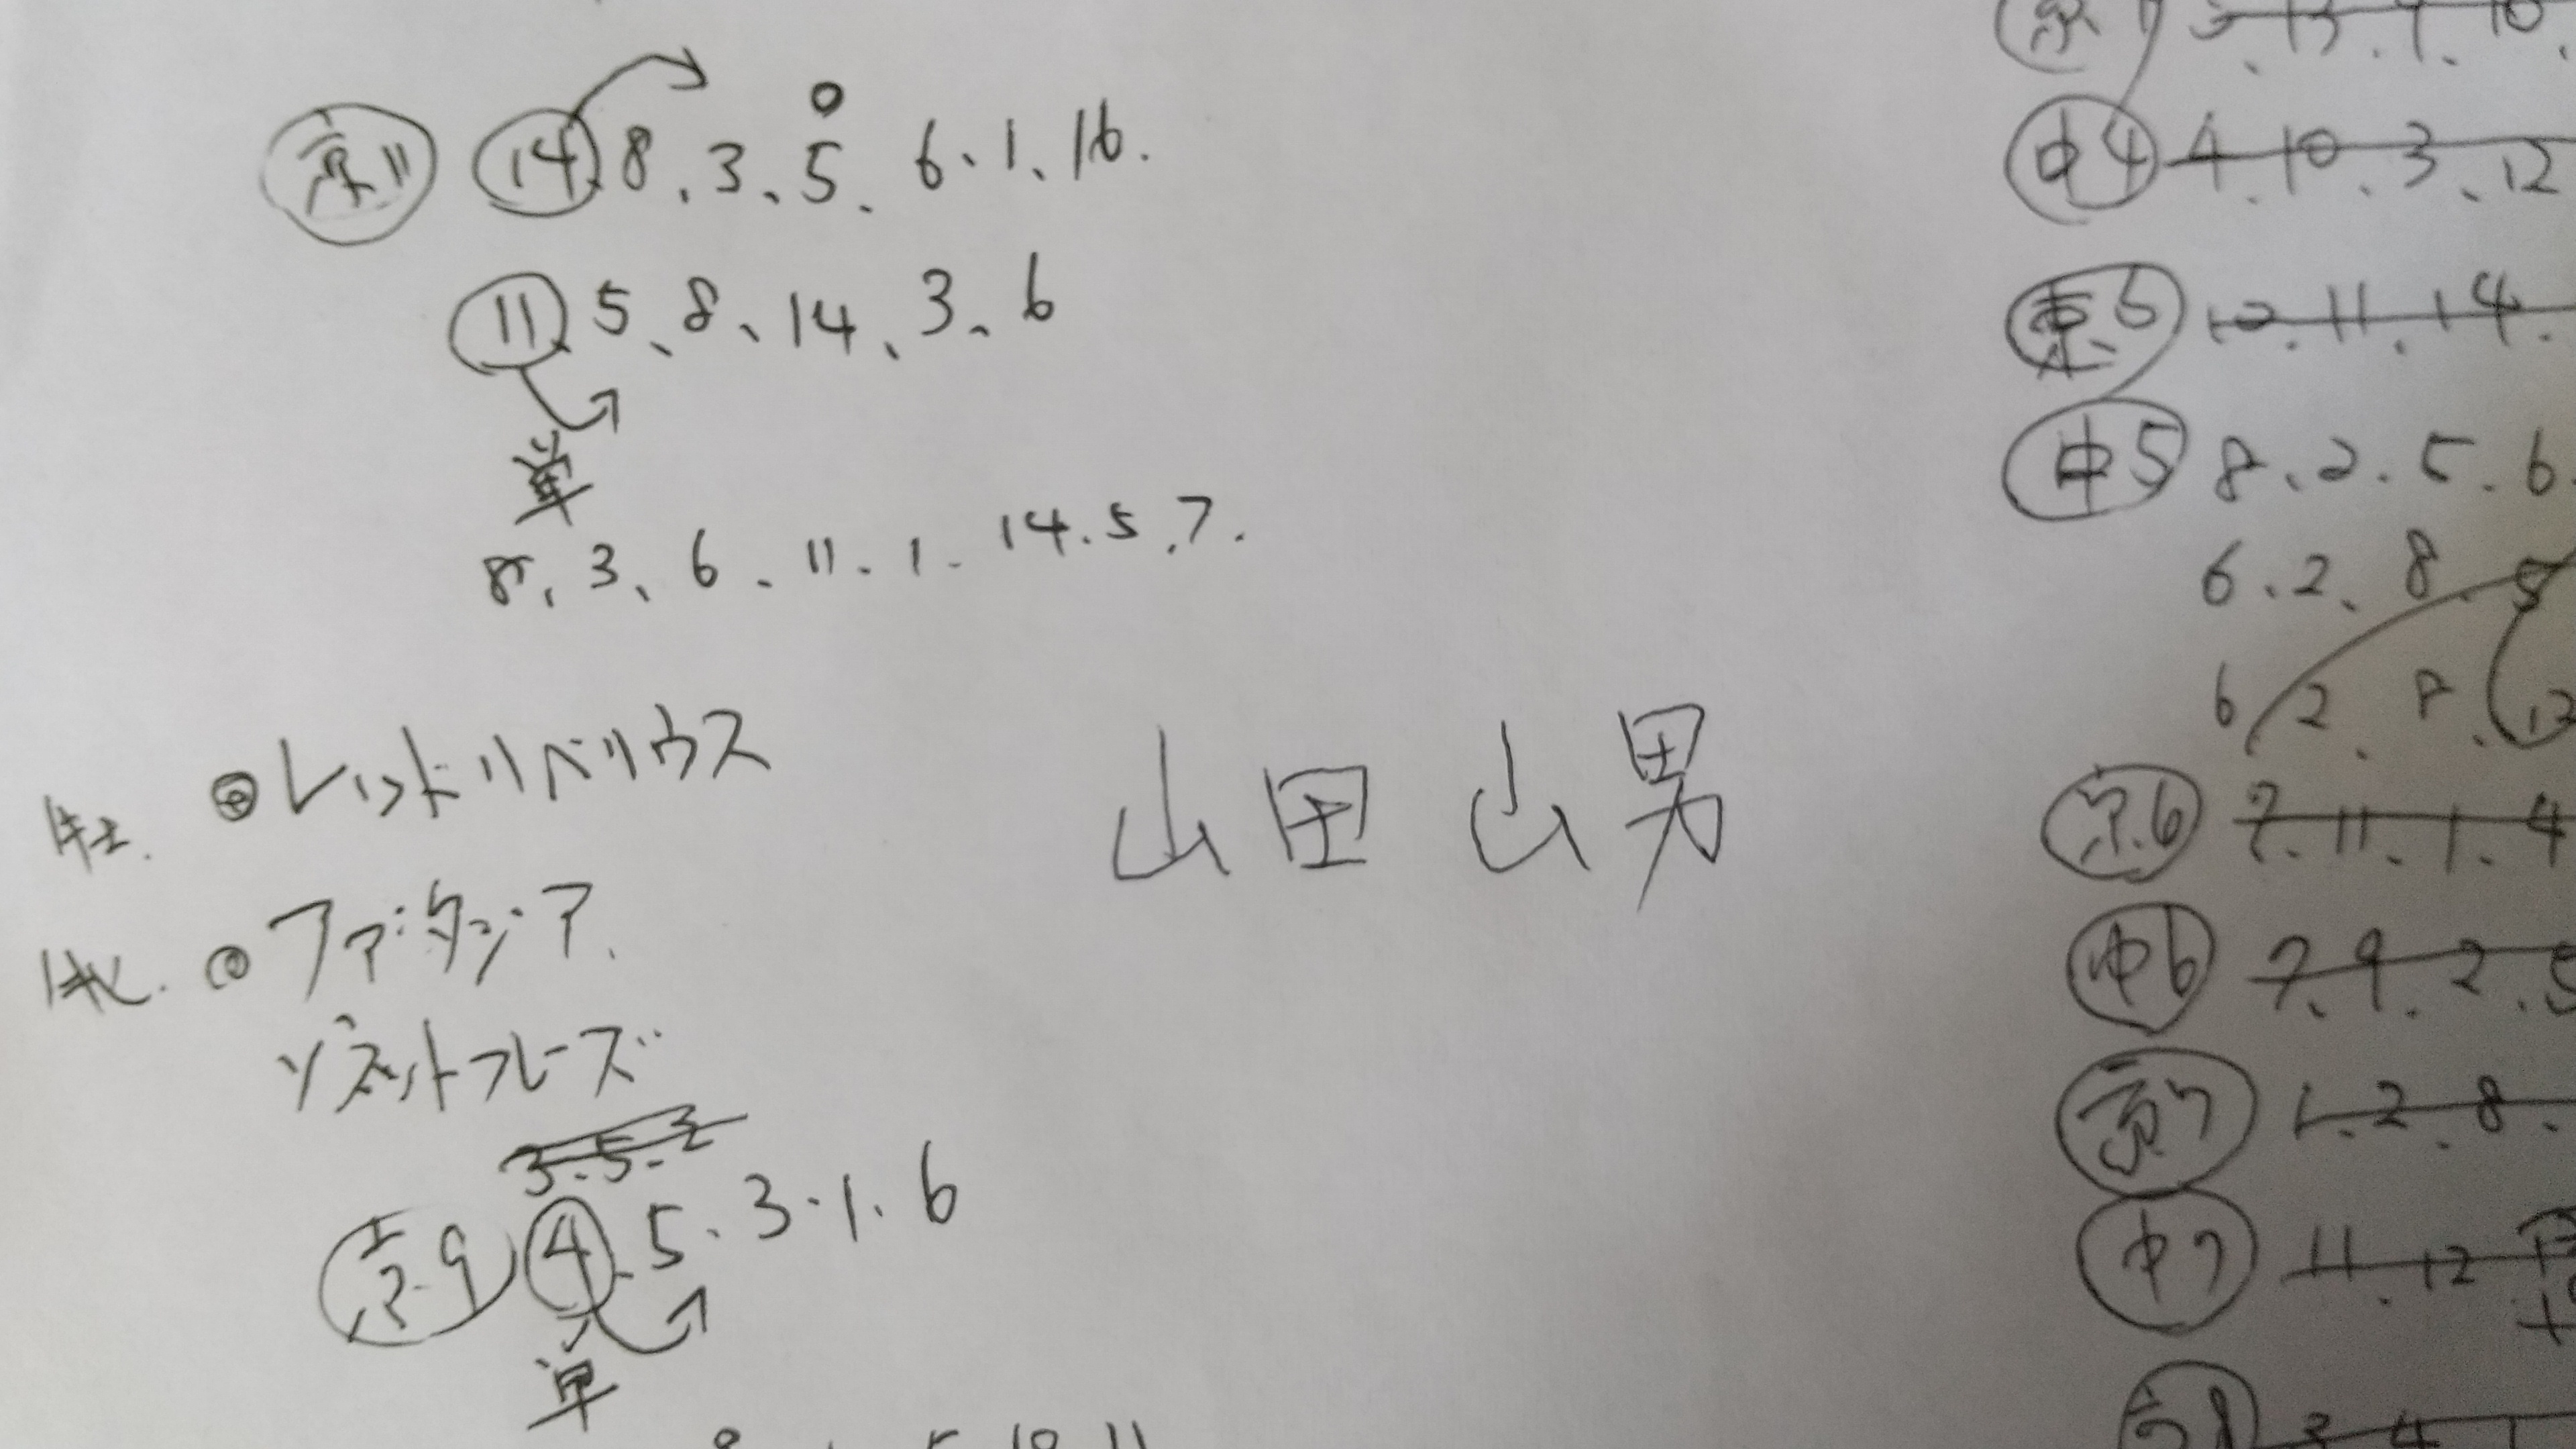 京11 14. 8、3、5、6、1、16.
11. 5、8、14、3、6
単
8、3、6、11、1、14、5、7.
牡. ◎レッドリベリウス
牝. ◎ファンタジア.
山田 山男
3.5.2
京9 4. 5、3、1、6
単
中4 4、10、3、12
東5 12、11、14、
中5 8、2、5、6.
6、2、8、5
6 2、8、12
京6 7、11、1、4
中6 7、9、2、5
京7 1、2、8、
中7 11、12
京8 3 4 1